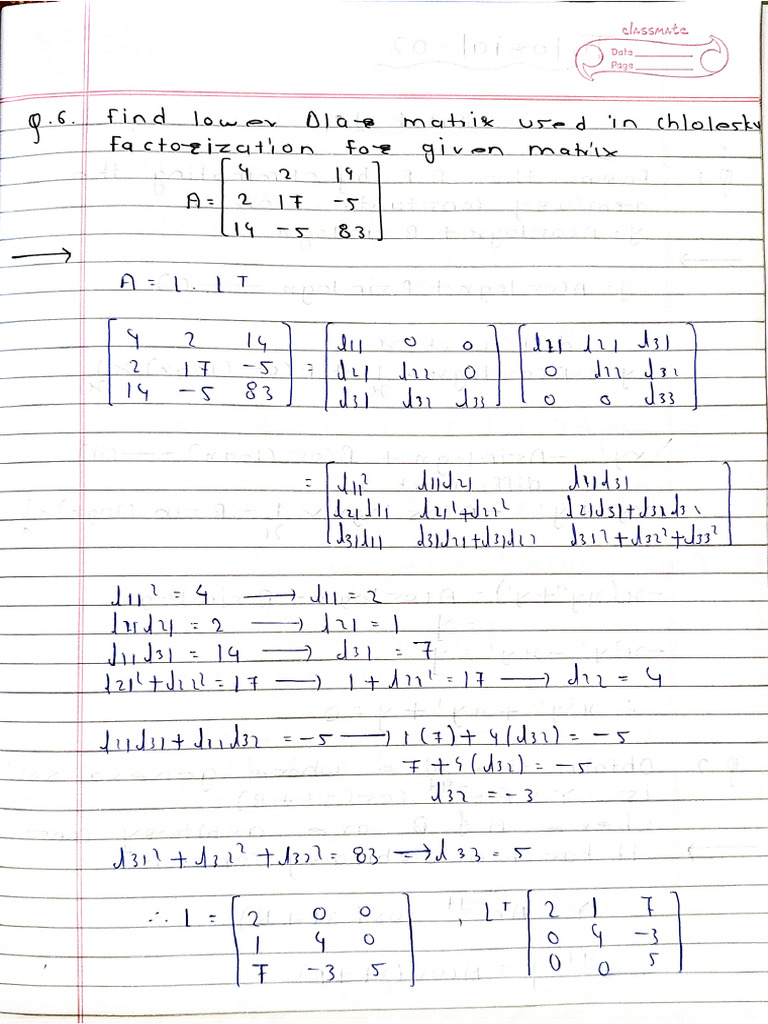 classmate
Date
Page
Q.6. Find lower Δlar matrix used in chloleskv
factorization for given matrix
A = [4 2 14
2 17 -5
14 -5 83]
→
A = L . L^T
[4 2 14
2 17 -5
14 -5 83] = [l11 0 0
l21 l22 0
l31 l32 l33] [l11 l21 l31
0 l22 l32
0 0 l33]
= [l11² l11l21 l11l31
l21l11 l21²+l22² l21l31+l22l32
l31l11 l31l21+l32l22 l31²+l32²+l33²]
l11² = 4 → l11 = 2
l11l21 = 2 → l21 = 1
l11l31 = 14 → l31 = 7
l21²+l22² = 17 → 1 + l22² = 17 → l22 = 4
l21l31 + l22l32 = -5 → 1(7) + 4(l32) = -5
7 + 4(l32) = -5
l32 = -3
l31² + l32² + l33² = 83 → l33 = 5
∴ L = [2 0 0
1 4 0
7 -3 5] , L^T [2 1 7
0 4 -3
0 0 5]